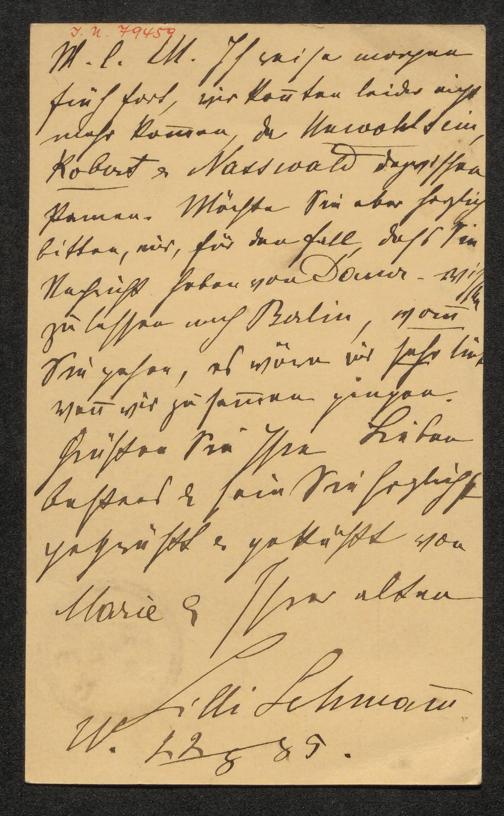 J. N. 79459
M. l. M. Ich reise morgen
früh fort, wir konnten leider nicht
mehr kommen, da Unwohlsein,
Robert & Nasswald dazwischen
kamen. Möchte Sie aber herzlich
bitten, mir, für den Fall, dass Sie
Nachricht haben von wissen
zu lassen nach Berlin, wann
Sie gehen, es wäre mir sehr lieb
wenn wir zusammen gingen.
Grüssen Sie Ihre Lieben
bestens & sein Sie herzlichst
gegrüsst & geküsst von
Marie & Ihrer alten
Lilli Lehmann
W. 22 8 85.